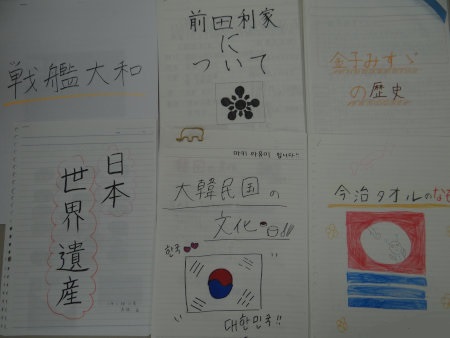 戦艦大和
前田利家
に
ついて
金子みすゞ
の歴史
日本
世界遺産
大韓民国の
文化
한국
대한민국!!
今治タオルのなぞ